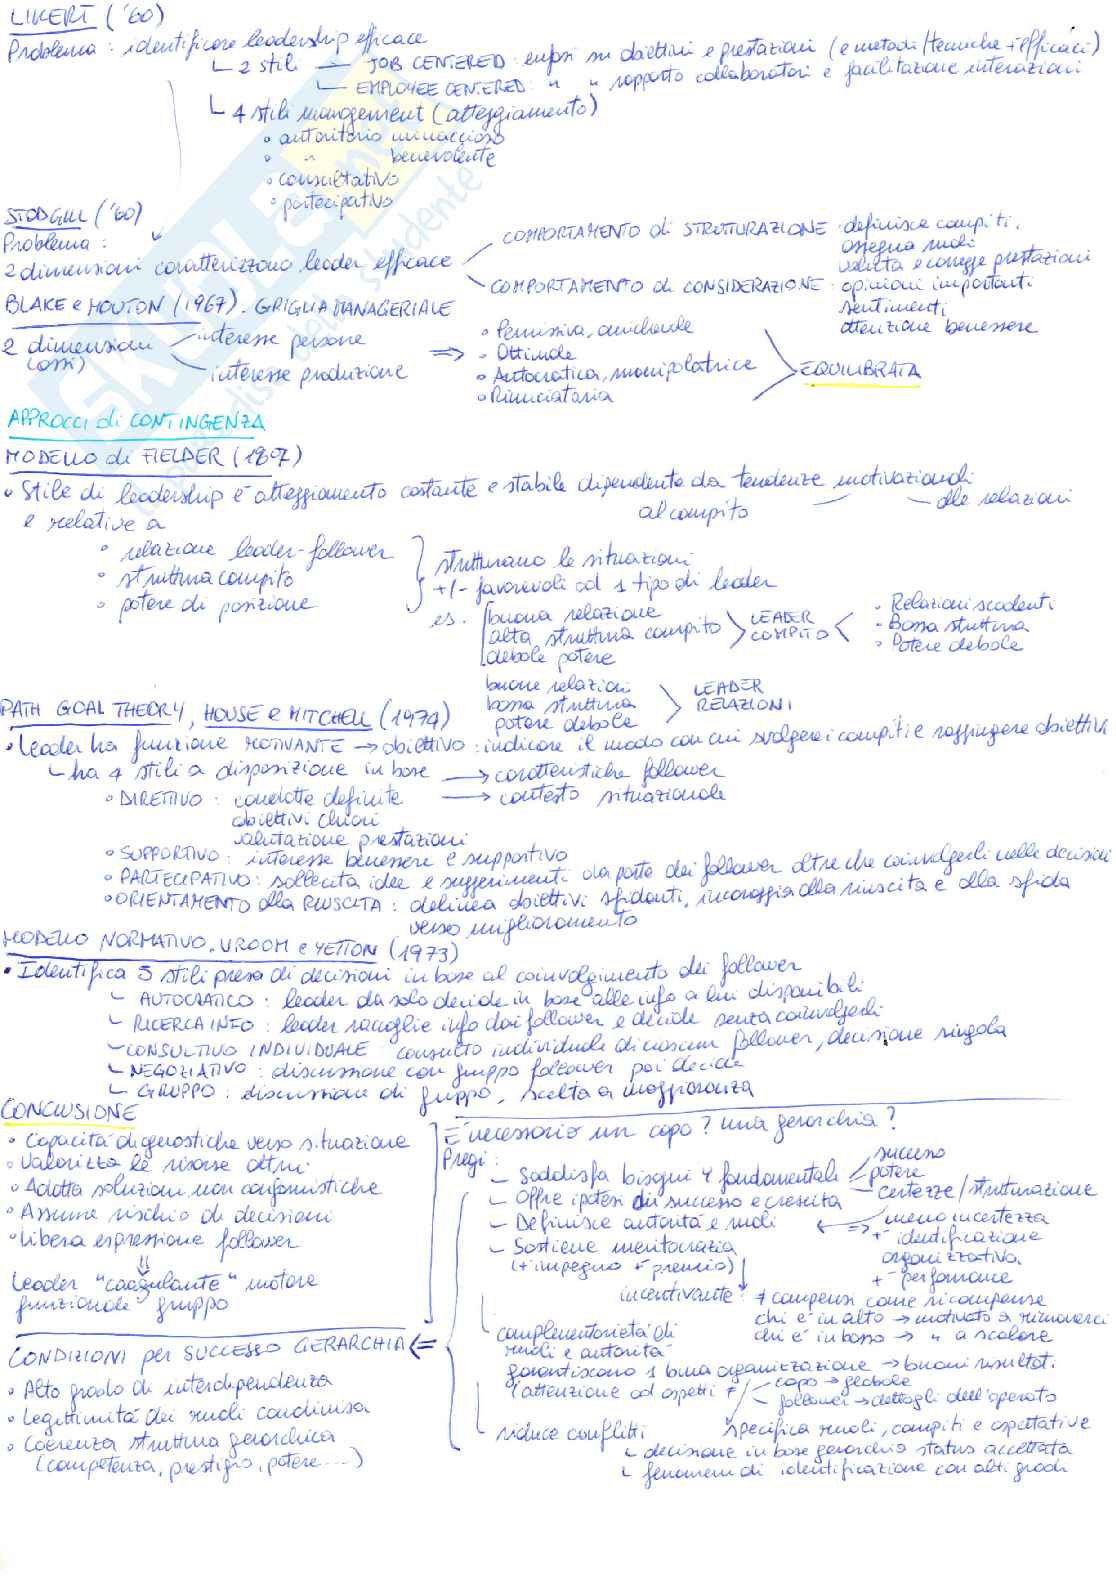 LIKERT ('60)
Problema : identificare leadership efficace
└ 2 stili — JOB CENTERED : enfasi su obiettivi e prestazioni (e metodi/tecniche + efficaci)
└ EMPLOYEE CENTERED : " " rapporto collaboratori e facilitazione interazioni
└ 4 stili management (atteggiamento)
° autoritario minaccioso
° " benevolente
° consultativo
° partecipativo
STODGILL ('60)
Problema :
2 dimensioni caratterizzano leader efficace
COMPORTAMENTO di STRUTTURAZIONE : definisce compiti,
assegna ruoli
valuta e corregge prestazioni
COMPORTAMENTO di CONSIDERAZIONE : opinioni importanti
sentimenti
attenzione benessere
BLAKE e MOUTON (1967). GRIGLIA MANAGERIALE
2 dimensioni (assi)
interesse persone
interesse produzione
=>
• Permissiva, amichevole
• Ottimale
• Autocratica, manipolatrice
• Rinunciataria
EQUILIBRATA
APPROCCI di CONTINGENZA
MODELLO di FIELDER (1967)
• Stile di leadership è atteggiamento costante e stabile dipendente da tendenze motivazionali
al compito — alle relazioni
e relative a
° relazione leader-follower
° struttura compito
° potere di posizione
strutturano le situazioni
+/- favorevoli ad 1 tipo di leader
es. buona relazione
alta struttura compito
debole potere
LEADER COMPITO
• Relazioni scadenti
• Bassa struttura
• Potere debole
buone relazioni
bassa struttura
potere debole
LEADER RELAZIONI
PATH GOAL THEORY, HOUSE e MITCHELL (1974)
• Leader ha funzione MOTIVANTE → obiettivo : indicare il modo con cui svolgere i compiti e raggiungere obiettivi
└ ha 4 stili a disposizione in base → caratteristiche follower
→ contesto situazionale
° DIRETTIVO : condotte definite
obiettivi chiari
valutazione prestazioni
° SUPPORTIVO : interesse benessere e supportivo
° PARTECIPATIVO : sollecita idee e suggerimenti da parte dei follower oltre che coinvolgerli nelle decisioni
° ORIENTAMENTO alla RIUSCITA : delinea obiettivi sfidanti, incoraggia alla riuscita e alla sfida
verso miglioramento
MODELLO NORMATIVO. VROOM e YETTON (1973)
• Identifica 5 stili presa di decisioni in base al coinvolgimento dei follower
└ AUTOCRATICO : leader da solo decide in base alle info a lui disponibili
└ RICERCA INFO : leader raccoglie info dai follower e decide senza coinvolgerli
└ CONSULTIVO INDIVIDUALE : consulto individuale di ciascun follower, decisione singola
└ NEGOZIATIVO : discussione con gruppo follower poi decide
└ GRUPPO : discussione di gruppo, scelta a maggioranza
CONCLUSIONE
° Capacità diagnostiche verso situazione
° Valorizza le risorse altrui
° Adotta soluzioni non conformistiche
° Assume rischio di decisioni
° Libera espressione follower
⇓
Leader "coagulante" motore
funzionale gruppo
CONDIZIONI per SUCCESSO GERARCHIA <=
° Alto grado di interdipendenza
° Legittimità dei ruoli condivisa
° Coerenza struttura gerarchica
(competenza, prestigio, potere....)
È necessario un capo? una gerarchia?
Pregi :
– Soddisfa bisogni 4 fondamentale
successo
potere
certezze/strutturazione
– Offre ipotesi di successo e crescita
– Definisce autorità e ruoli
=> meno incertezza
+ identificazione
organizzativa
+ performance
– Sostiene meritocrazia
(+ impegno + premio)
incentivante : ≠ compensi come ricompense
chi è in alto → motivato a rimanerci
chi è in basso → " a scalare
complementarietà di
ruoli e autorità
garantiscono 1 buona organizzazione → buoni risultati
(attenzione ad aspetti ≠
capo → globale
follower → dettagli dell'operato
riduce conflitti
specifica ruoli, compiti e aspettative
└ decisione in base gerarchia status accettata
└ fenomeni di identificazione con alti gradi
SKUOLA.net